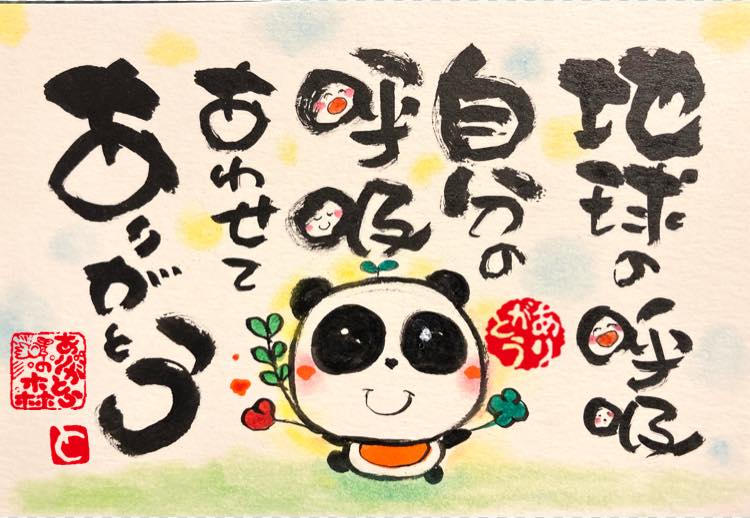 地球の呼吸
自分の
呼吸
あわせて
ありがとう
ありがとう
ありがとう
の森